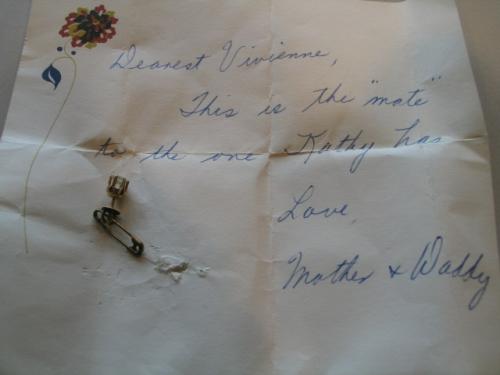 Dearest Vivienne,
This is the "mate"
to the one Kathy has
Love,
Mother & Waddy